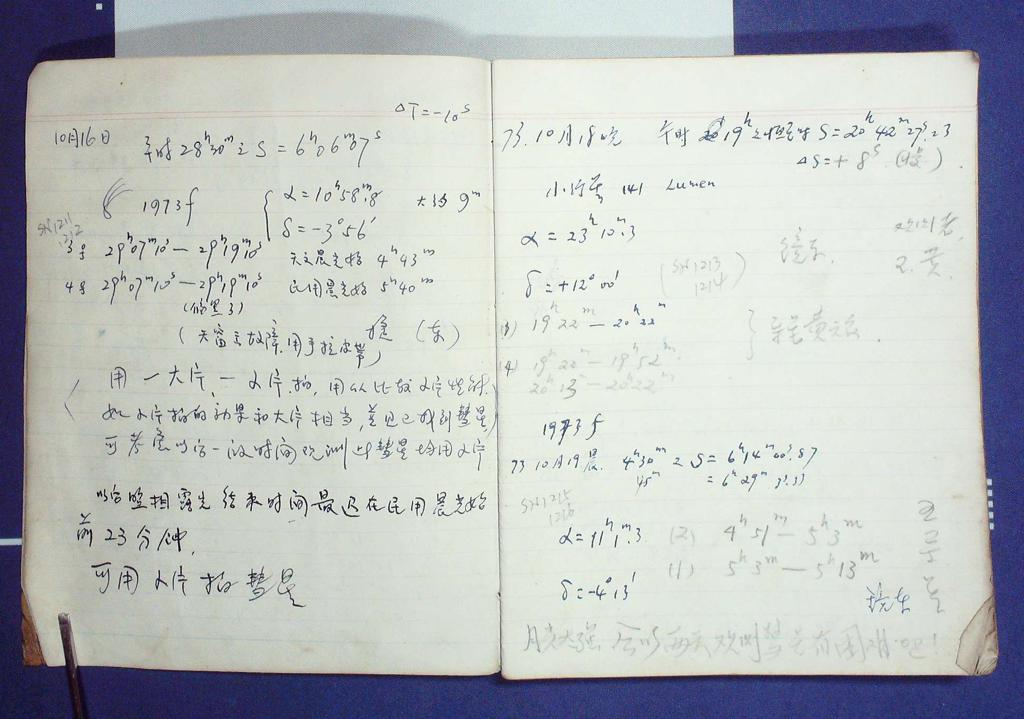 ΔT=-10ˢ
10月16日
平时28ʰ30ᵐ之S=6ʰ06ᵐ07ˢ
1973f
α=10ʰ58ᵐ.8
大约9ᵐ
δ=-3°56′
SH1211
1212
3号 29ʰ07ᵐ10ˢ—29ʰ19ᵐ10ˢ 天文晨光始 4ʰ43ᵐ
4号 29ʰ07ᵐ10ˢ—29ʰ19ᵐ10ˢ 民用晨光始 5ʰ40ᵐ
(天窗故障,用手拉皮带)
(东)
用一大片一小片拍,用以比较小片性能
如小片拍的效果和大片相当,并且已找到彗星,
可考虑以后一段时间观测此彗星均用小片
以后照相露光结束时间最迟在民用晨光始
前23分钟,
可用小片拍彗星
73.10月18晚 平时19ʰ之恒星时S=20ʰ42ᵐ27ˢ.23
ΔS=+8ˢ
小行星 141 Lumen
α=23ʰ10ᵐ.3
δ=+12°00′
SH1213
1214
(3) 19ʰ22ᵐ—20ʰ22ᵐ
(4) 19ʰ22ᵐ—19ʰ52ᵐ
20ʰ13ᵐ—20ʰ22ᵐ
1973f
73 10月19晨. 4ʰ30ᵐ之S=6ʰ14ᵐ00ˢ.87
45ᵐ =6ʰ29ᵐ
SH1215
1216
α=11ʰ1ᵐ.3 (2) 4ʰ51ᵐ—5ʰ3ᵐ
(1) 5ʰ3ᵐ—5ʰ13ᵐ
δ=-4°13′
月光太强 今后两天观测彗星有困难吧!